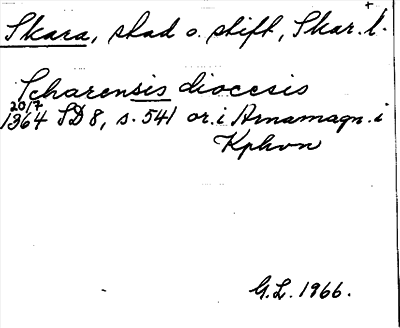 Skara, stad o. stift, Skar. l.
+
Scharensis diocesis
20/7
1364 SD 8, s. 541 or. i Arnamagn. i
Kphvn
G.L. 1966.